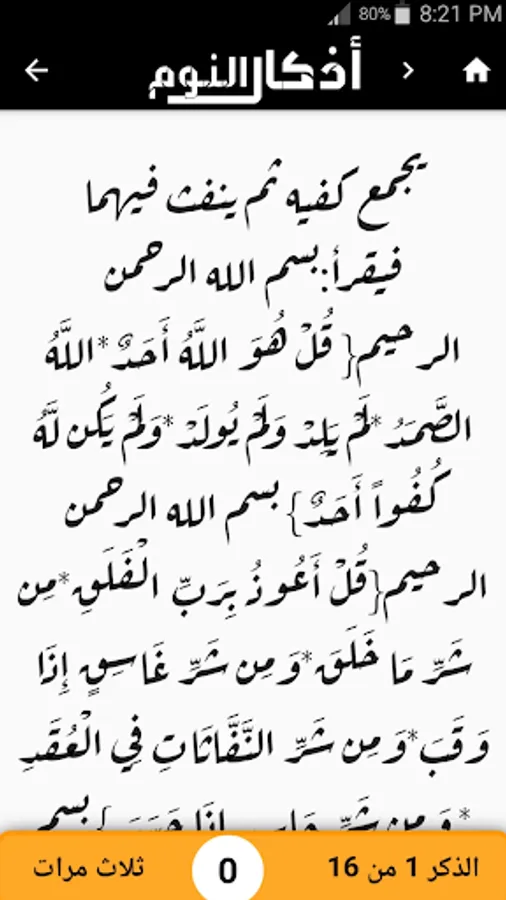 80% 8:21 PM
أذكار النوم
يجمع كفيه ثم ينفث فيهما
فيقرأ:بسم الله الرحمن
الرحيم{ قُلْ هُوَ اللَّهُ أَحَدٌ*اللَّهُ
الصَّمَدُ*لَمْ يَلِدْ وَلَمْ يُولَدْ*وَلَمْ يَكُن لَّهُ
كُفُواً أَحَدٌ} بسم الله الرحمن
الرحيم{قُلْ أَعُوذُ بِرَبِّ الْفَلَقِ*مِن
شَرِّ مَا خَلَقَ*وَمِن شَرِّ غَاسِقٍ إِذَا
وَقَبَ*وَمِن شَرِّ النَّفَّاثَاتِ فِي الْعُقَدِ
*وَمِن شَرِّ حَاسِدٍ إِذَا حَسَدَ } بسم
الذكر 1 من 16 0 ثلاث مرات